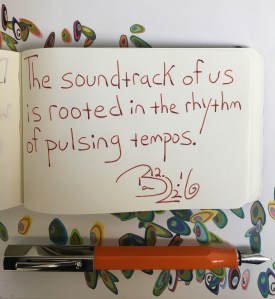 The soundtrack of us
is rooted in the rhythm
of pulsing tempos.